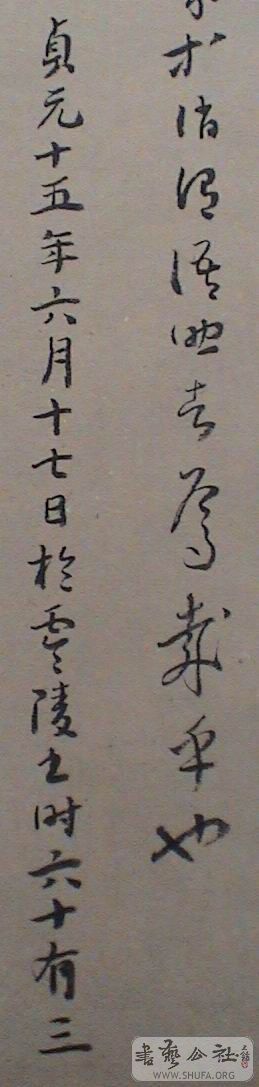 等誚謂語助者焉哉乎也
貞元十五年六月十七日於零陵書時六十有三
書藝公社
WWW.SHUFA.ORG